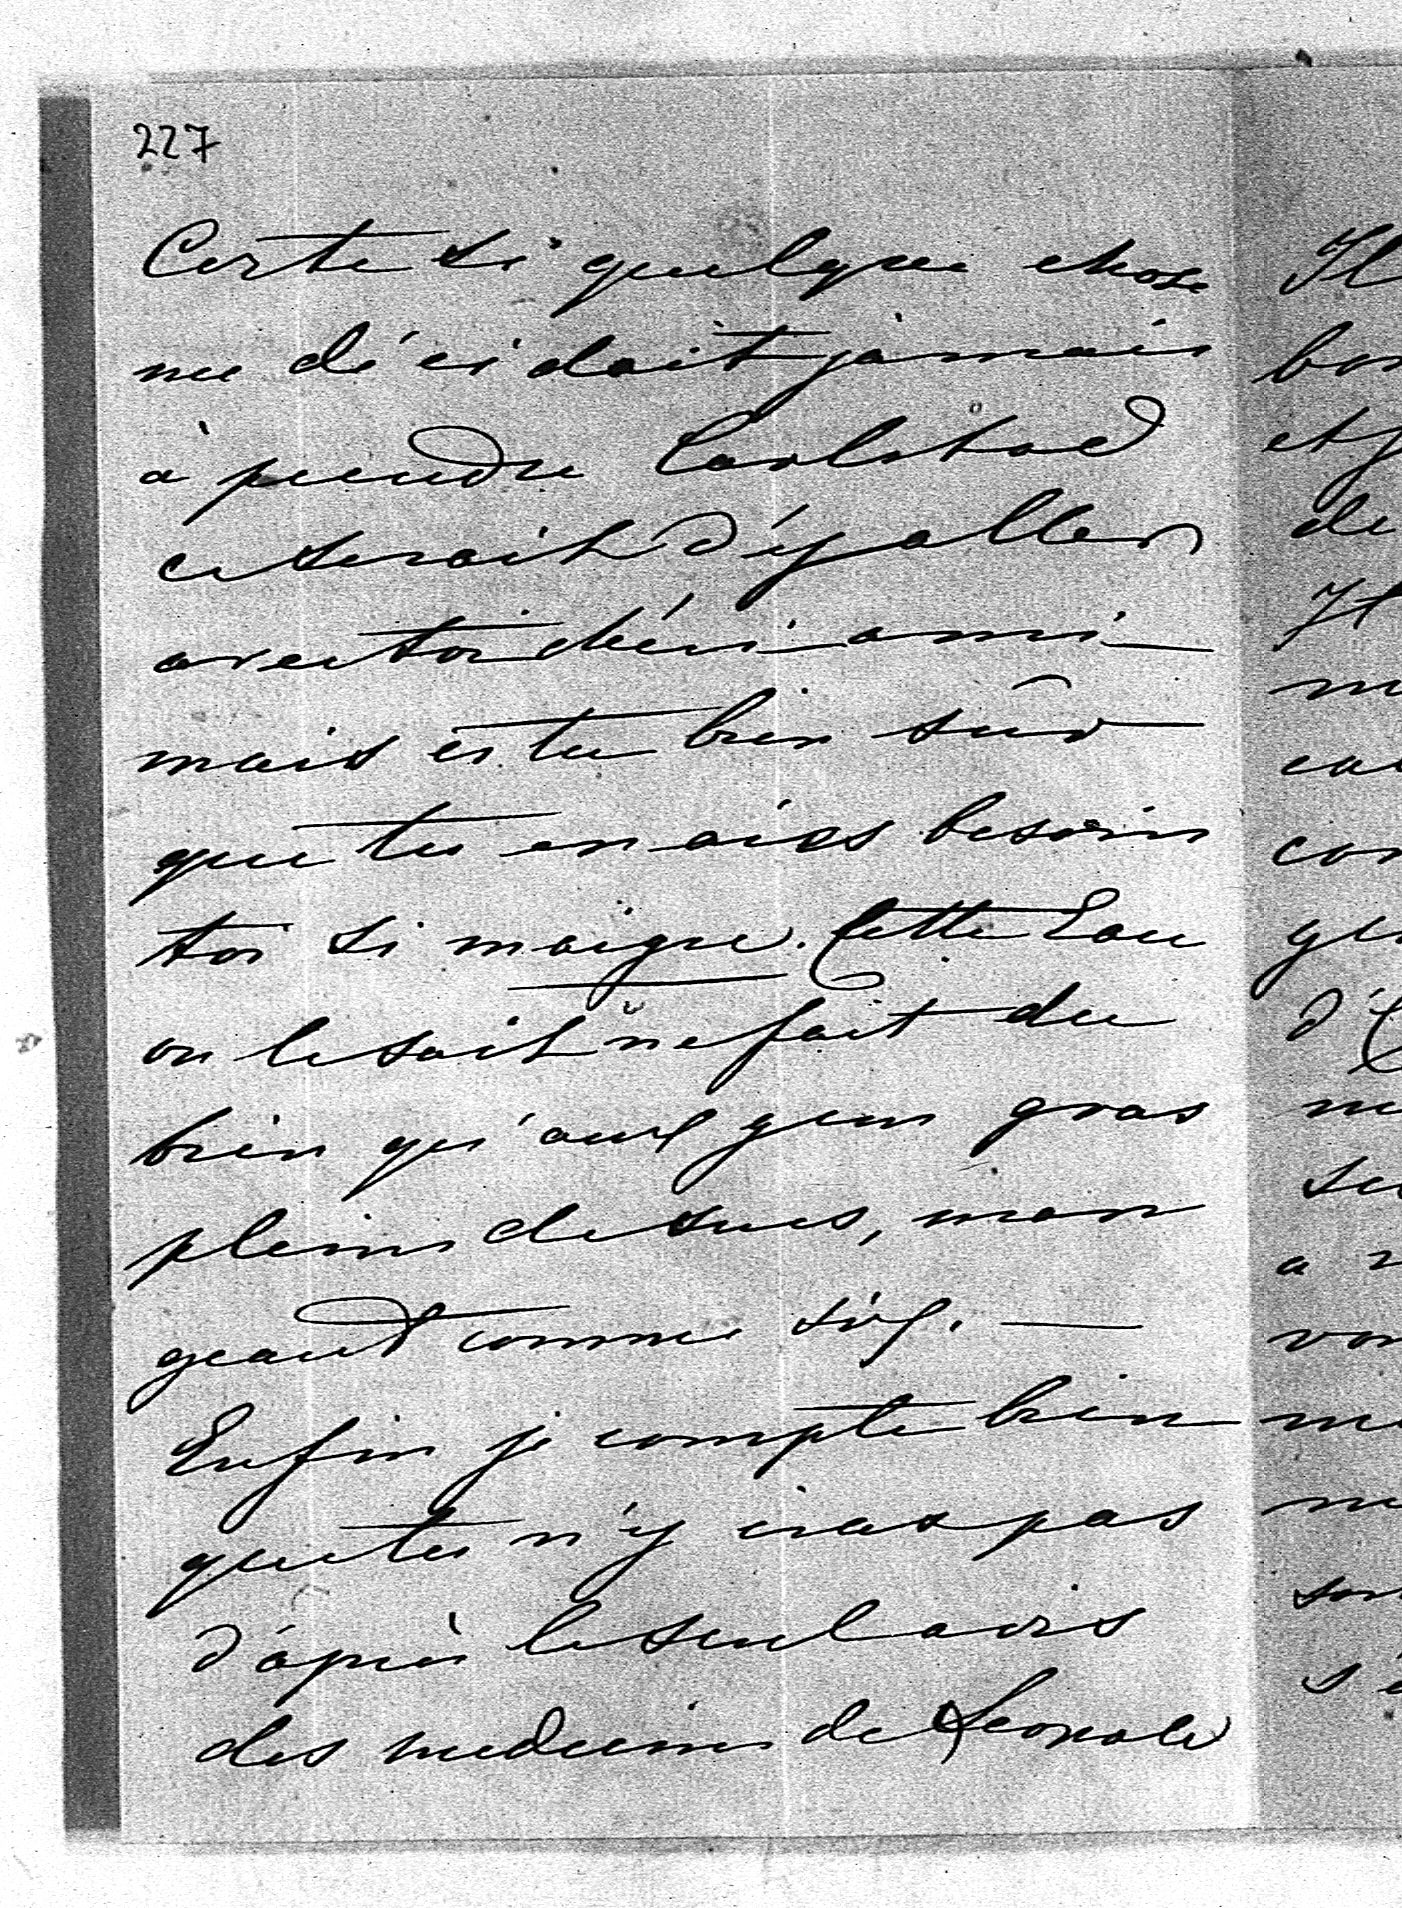 227
Certe si quelque chose
me décidait jamais
à prendre Carlsbad
ce serait d'y aller
avec toi chéri ami —
mais es tu bien sûr —
que tu en aies besoin
toi si maigre. Cette Eau
on le sait ne fait du
bien qu'aux gens gras
pleins de sucs, man
geant comme six. —
Enfin je compte bien —
que tu n'y iras pas
d'après le seul avis
des medecins de